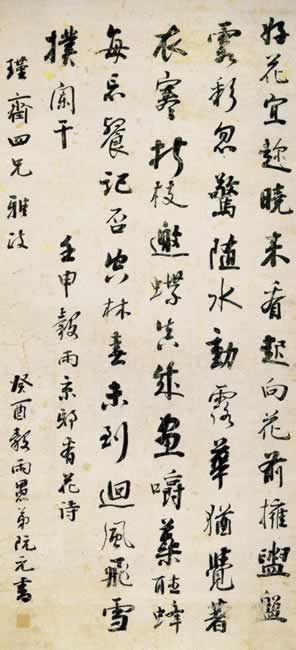 好花宜趂曉來看起向花前擁盥盤
霞彩忽驚隨水動露華猶覺著
衣寒折枝邀蝶真成畫嚼蕊聽蜂
每忘餐記否空林春未到迴風飛雪
撲闌干
壬申穀雨京邸看花詩
瑾齋四兄雅政
癸酉穀雨愚弟阮元書